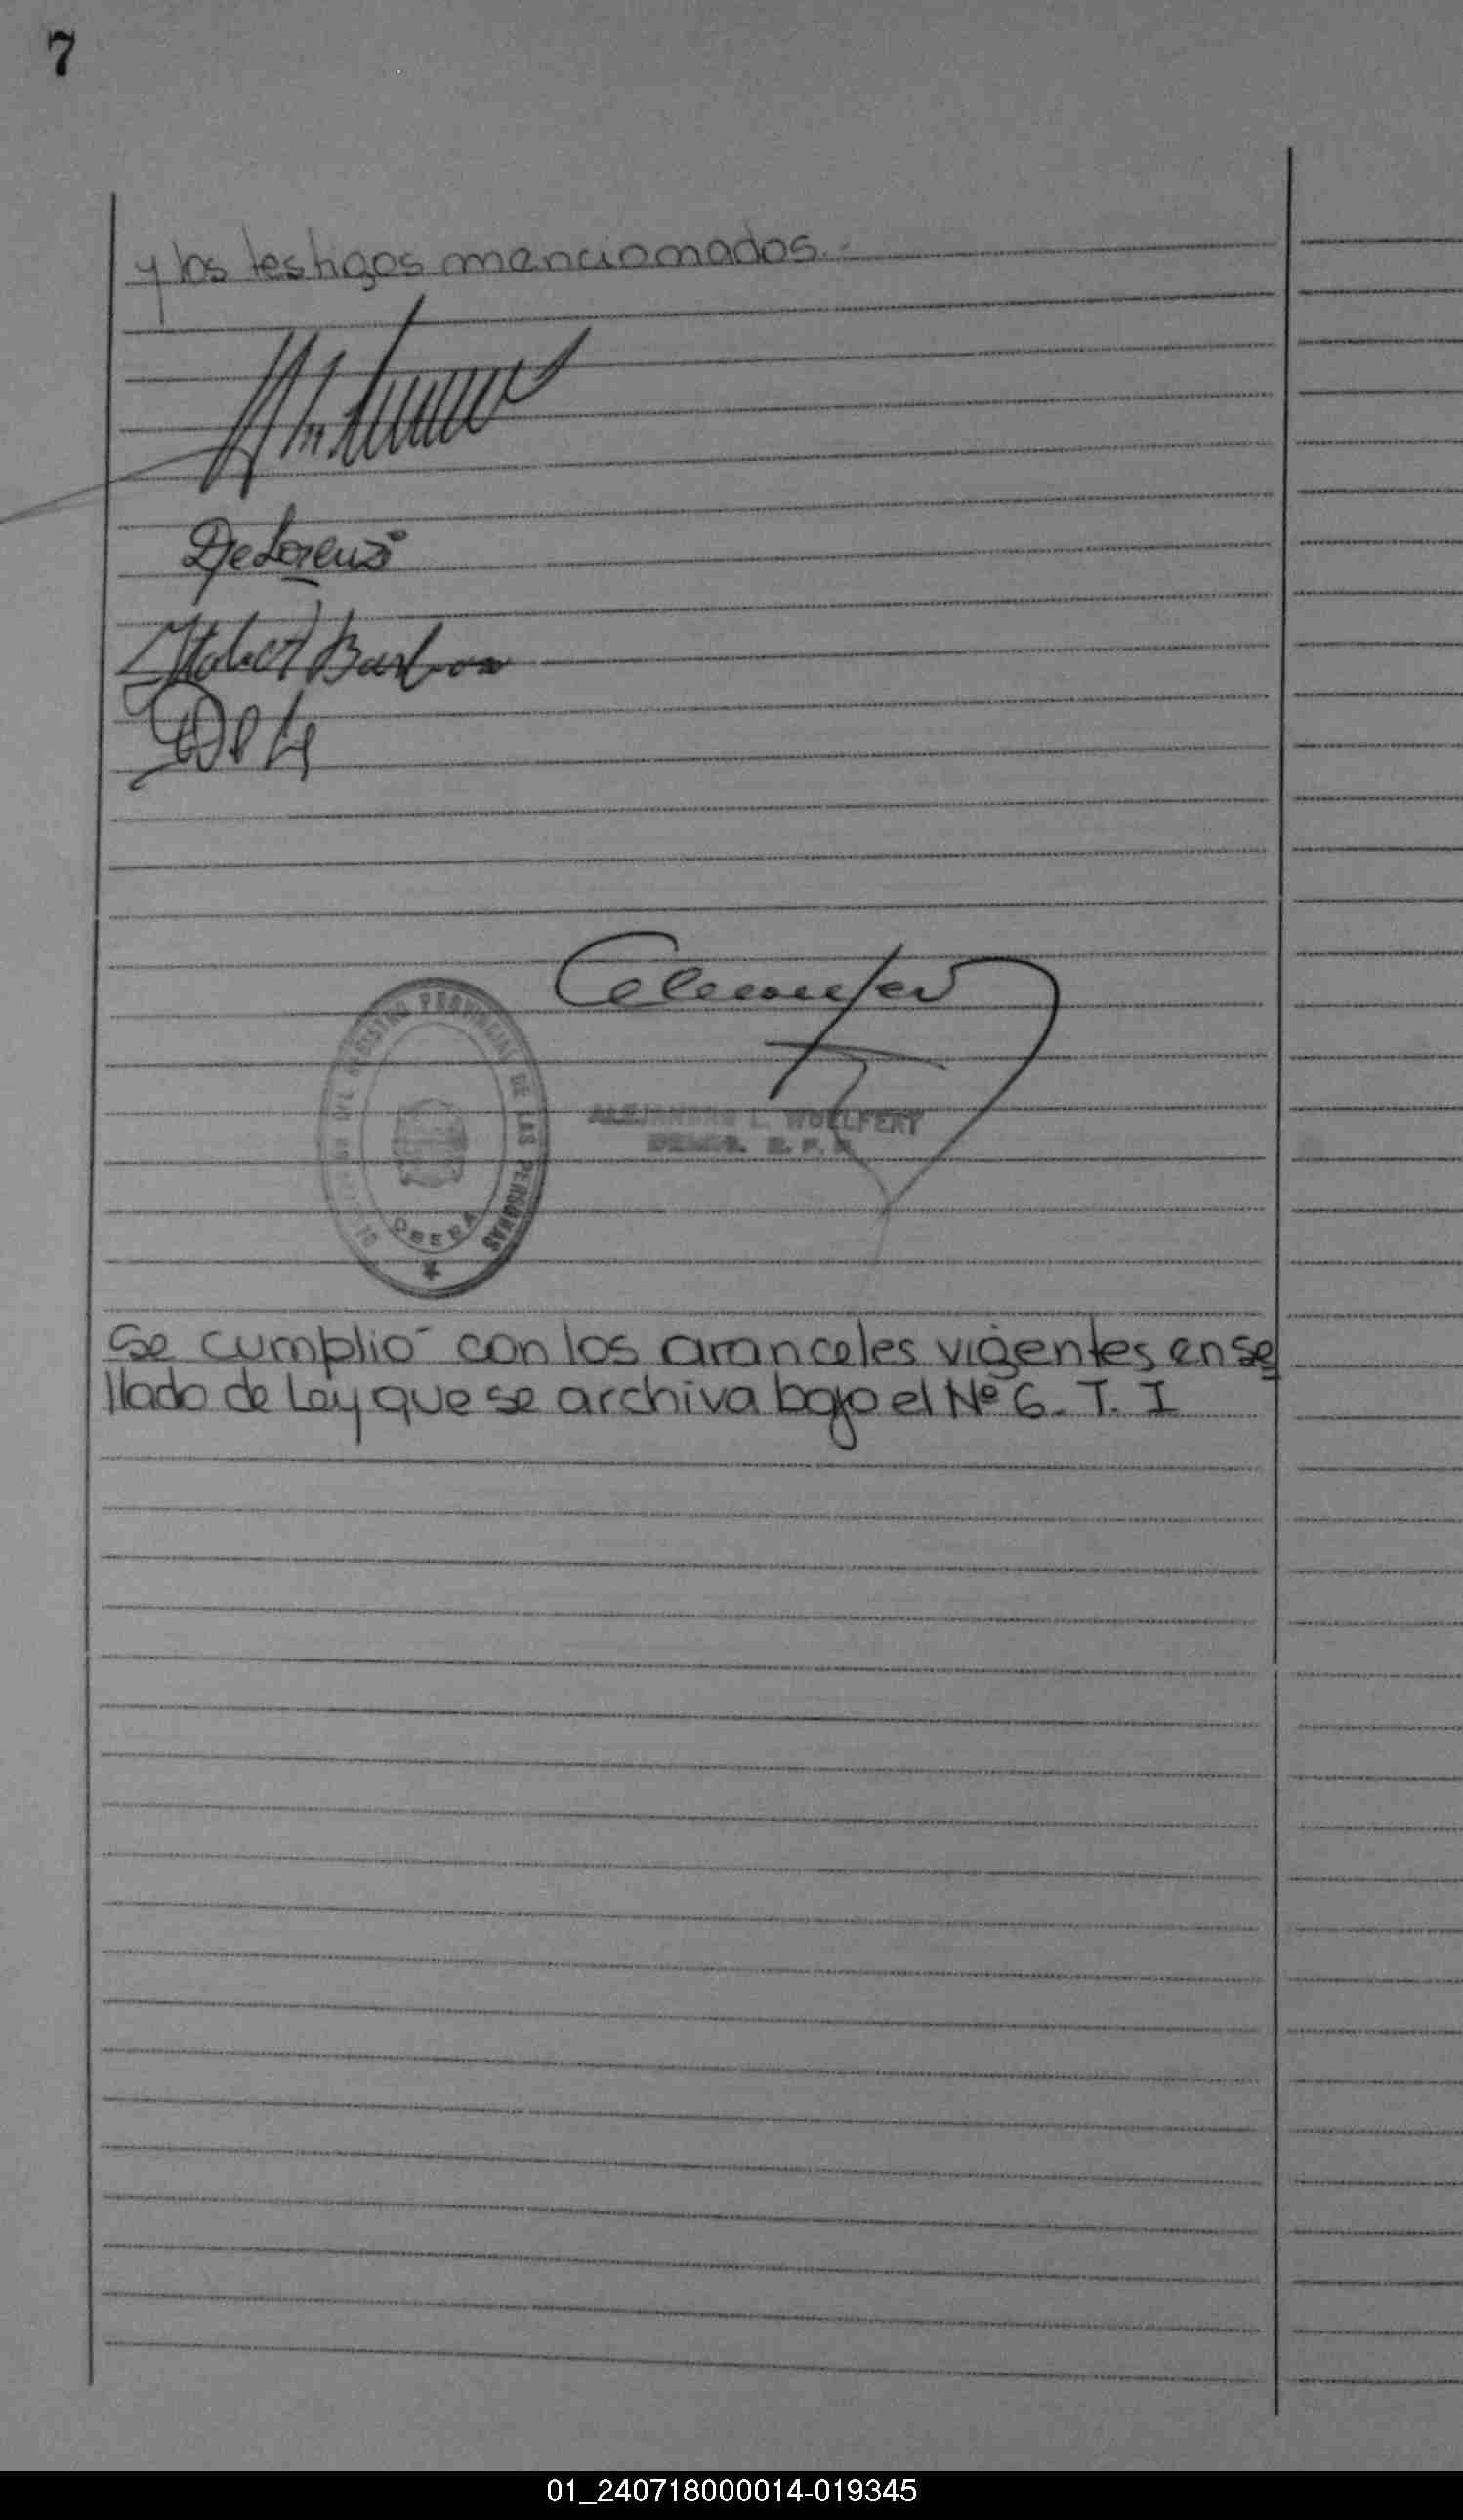 7
y los testigos mencionados.-
De Lorenzi
REGISTRO PROVINCIAL DE LAS PERSONAS
OBERA
ALEJANDRO L. WOELFERT
Se cumplió con los aranceles vigentes en se
llado de Ley que se archiva bajo el Nº 6. T. I
01_240718000014-019345